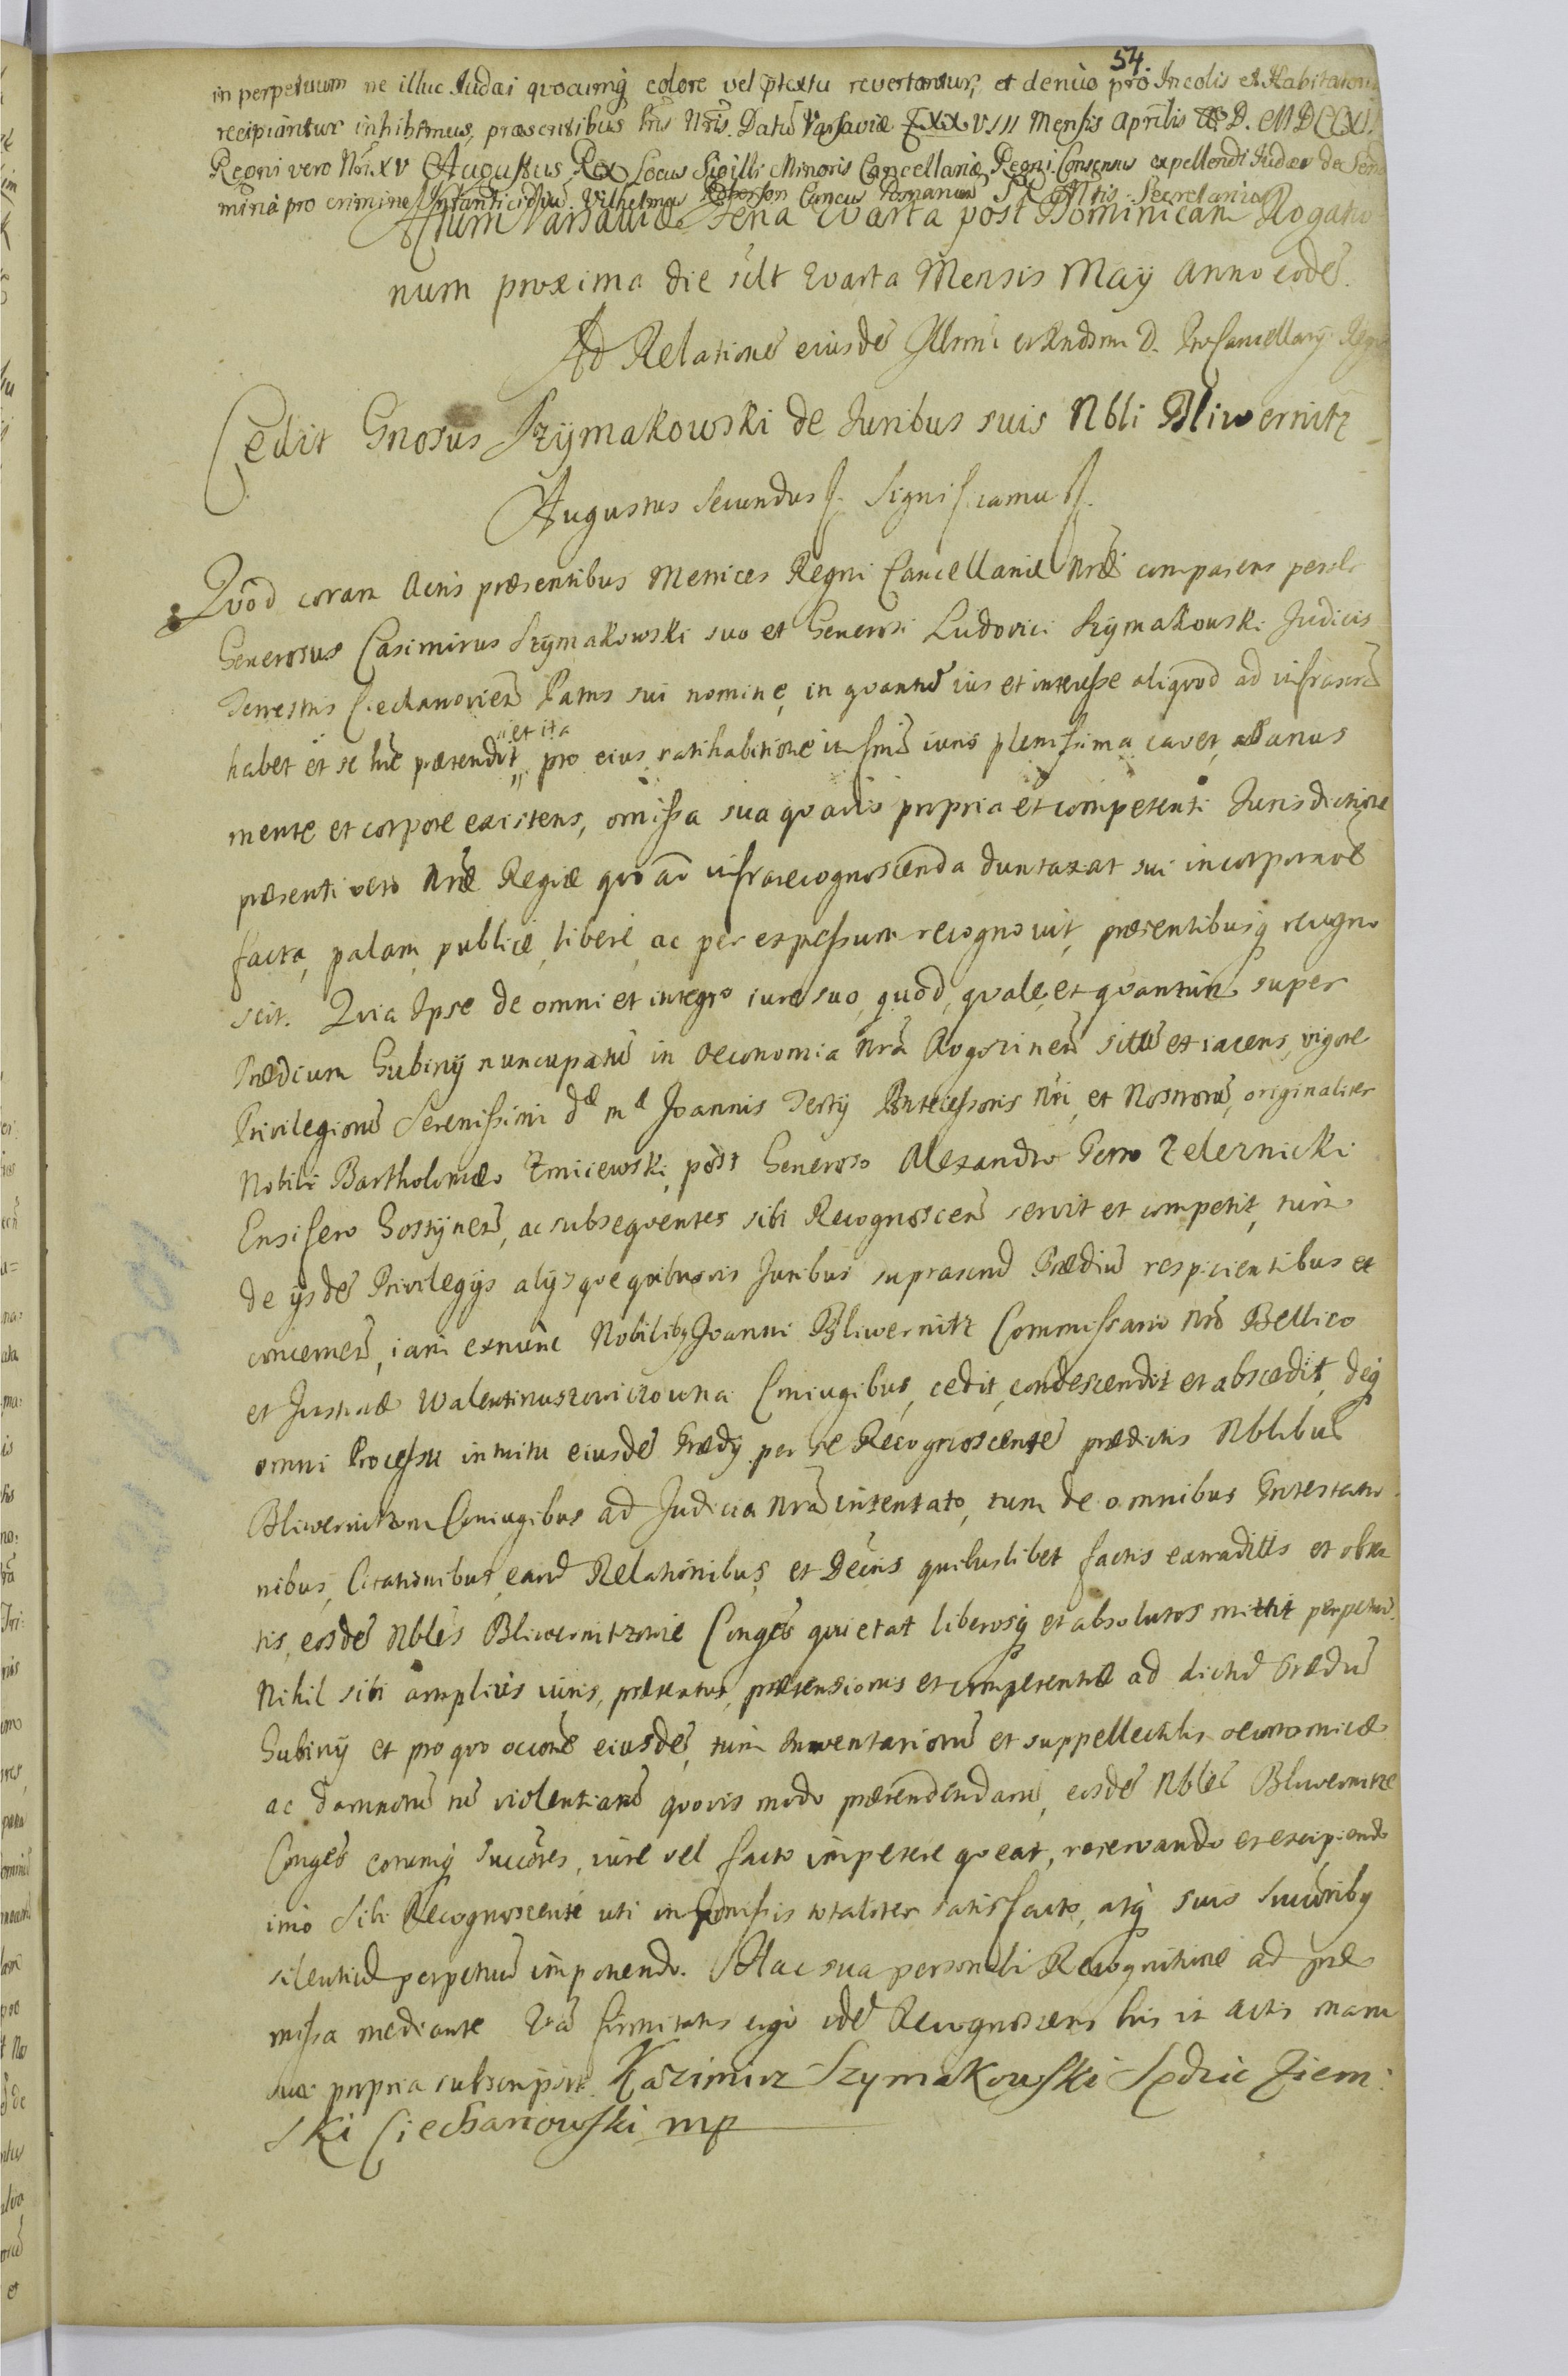 54.
in perpetuum ne illuc Judæi quocumq colore vel ptextu revertantur, et denuo pro Incolis et Habitatorib
recipiantur inhibemus, præsentibus Lris Nris. Datũ Varsaviæ XXVIII Mensis Aprilis D. MDCCXI.
Regni vero Nri XV Augustus Rex Locus Sigilli Minoris Cancellariæ Regni. Consensus expellendi Judæos de Send
miria pro crimine Infanticidiũ. Vilhelmus Cancus Pomaranus S R Mtis Secretarius
Actum Varsaviæ Feria Quarta post Dominicam Rogatio
num proxima die silt Quarta Mensis Maÿ Anno eodẽ.
Ad Relationẽ eiusdẽ Illmi et Rndmi D. ProCancellarÿ Regni
Cedit Gnosus Szÿmakowski de Juribus suis Nbli Bliwernitz
Augustus Secundus. Significamus.
Quod coram Actis præsentibus Metrices Regni Cancellariæ Nræ comparens persolr
Generosus Casimirus Szÿmakowski suo et Generosi Ludovici Szÿmakowski Judicis
Terrestris Ciechanovien Patris sui nomine, in quantũ ius et interesse aliquod ad infrascrta
habet et se hre prætendit, "et ita pro eius ratihabitione in forma iuris plenissima cavet, sanus
mente et corpore existens, omissa sua quavis propria et competenti Jurisdictione
præsenti vero Nræ Regiæ quo ad infrarecognoscenda duntaxat sui incorporaõe
facta, palam, publice, libere, ac per expressum recognovit, præsentibusq recogno
scit. Quia Ipse de omni et integro iure suo, quod, quale, et quantum super
Prædium Gubinÿ nuncupatũ in Oeconomia Nra Rogozinen sitũ et iacens, vigore
Privilegiorũ Serenissimi dæ mæ Joannis Tertÿ Antecessoris Nri, et Nostrorũ, originaliter
Nobili Bartholomæo Zmiiewski, post Generoso Alexandro Petro Zelernicki
Ensifero Gostÿnen, ac subsequenter sibi Recognoscen servit et competit, tum
de ÿsdẽ Privilegÿs alÿsque quibusvis Juribus suprascrud Prædiũ respicientibus et
concernen, iam exnunc Nobilibq Joanni Bliwernitz Commissario Nro Bellico
et Justinæ Walentinuszowiczowna Coniugibus, cedit, condescendit et abscedit, deq
omni Processu intuitu eiusdẽ Prædÿ per se Recognoscentẽ prædictis Nblibus
Bliwernitzom Coniugibus ad Judicia Nra intentato, tum de omnibus Protestatio
nibus, Citationibus, eard Relationibus, et Decris quibuslibet factis extraditis et obten
tis, eosdẽ Nbles Bliwernitzowie Conges quietat liberosq et absolutos mittit perpetuo.
Nihil sibi amplius iuris, prætextus, prætensionis et competentiæ ad dictũ Prædiũ
Gubinÿ et pro quo occone eiusdẽ, tum Inventariorũ et suppellectilis oeconomicæ
ac damnorũ tũ violentiarũ quovis modo prætendendarũ, eosdẽ Nbles Bliwernitz
Conges eorumq Succores, iure vel facto impetere queat, reservando et excipiendo
imo Sibi Recognoscenti uti in præmissis totaliter satisfacto, atq suis Succoribq
silentiũ perpetuũ imponendo. Hac sua personali Recognitione ad præ
missa mediante Qua firmitatis ergo idẽ Recognoscens his in Actis manu
sua propria subscripsit. Kazimirz Szymakowski Sędzic Ziem:
ski Ciechanowski mp